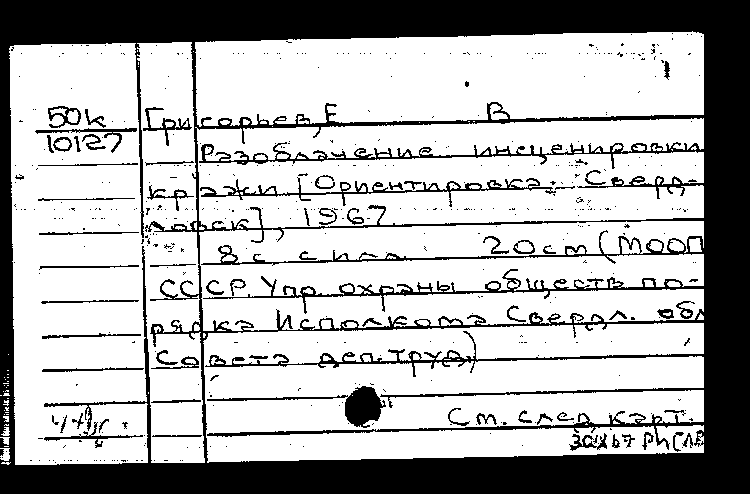 1
50к Григорьев, Е В
10127
Разоблачение инсценировки
кражи [Ориентировка. Сверд-
ловск], 1967.
8 с с илл. 20 см (МООП
СССР. Упр охраны обществ по-
рядка Исполкома Свердл. обл
Совета деп. труд.)
См. след карт.